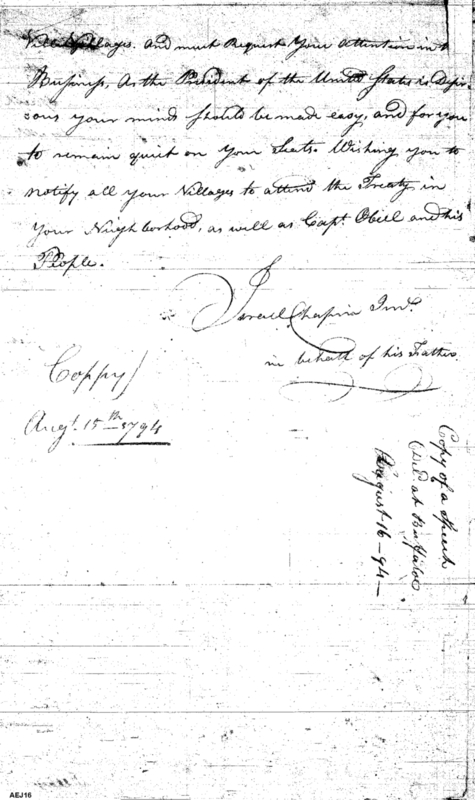 Villages. And must Request Your Attention in t
Business, As the President of the United States is Desir-
=ous your minds should be made easy, and for you
to remain quiet on Your Seats. Wishing you to
notify all your Villages to attend the Treaty in
Your Nieghborhood, as well as Capt. Obiel and his
People.
Israel Chapin Junr.
in behalf of his Father
Coppy
Augt. 15th 1794
Copy of a Speech
Deld. at Buffaloe
August 16 - 94 -
AEJ16